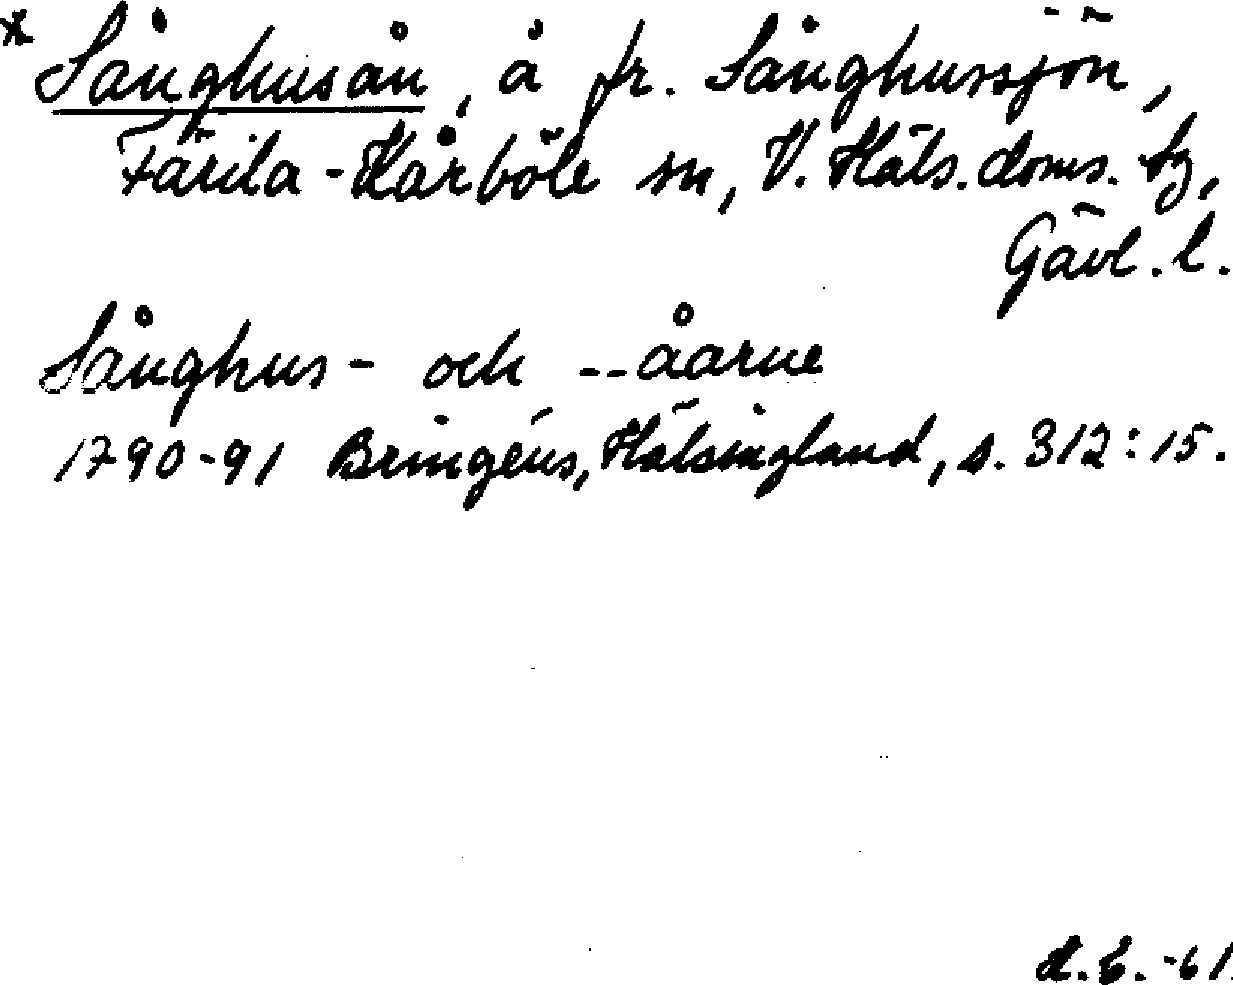 * Sånghusån, å fr. Sånghussjön,
Färila-Kårböle sn, V. Häls. doms. tg,
Gävl. l.
Sånghus- och --åarne
1790-91 Bringéus, Hälsingland, s. 312:15.
d.b. -61